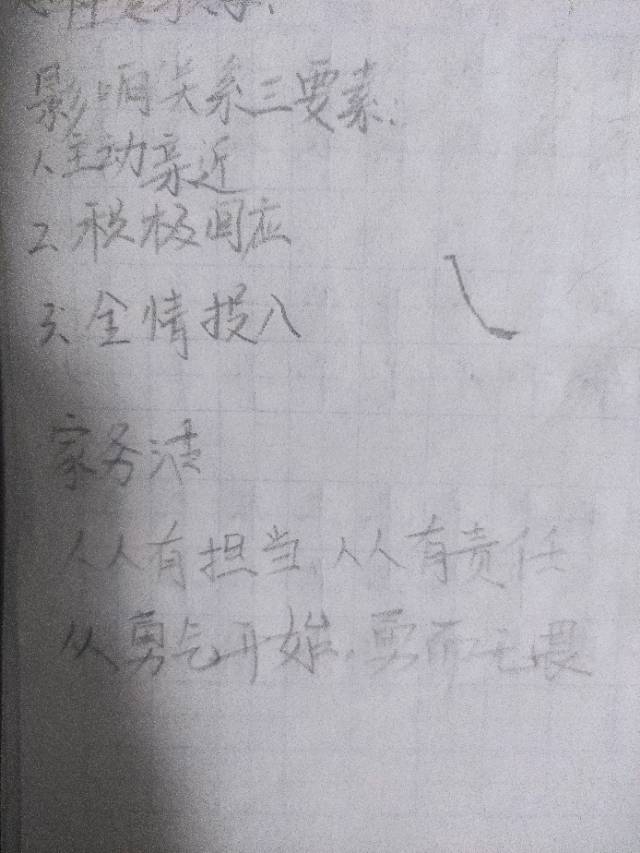 影响关系三要素:
1.主动亲近
2.积极回应
3.全情投入
家务活
人人有担当,人人有责任
从勇气开始,勇而无畏